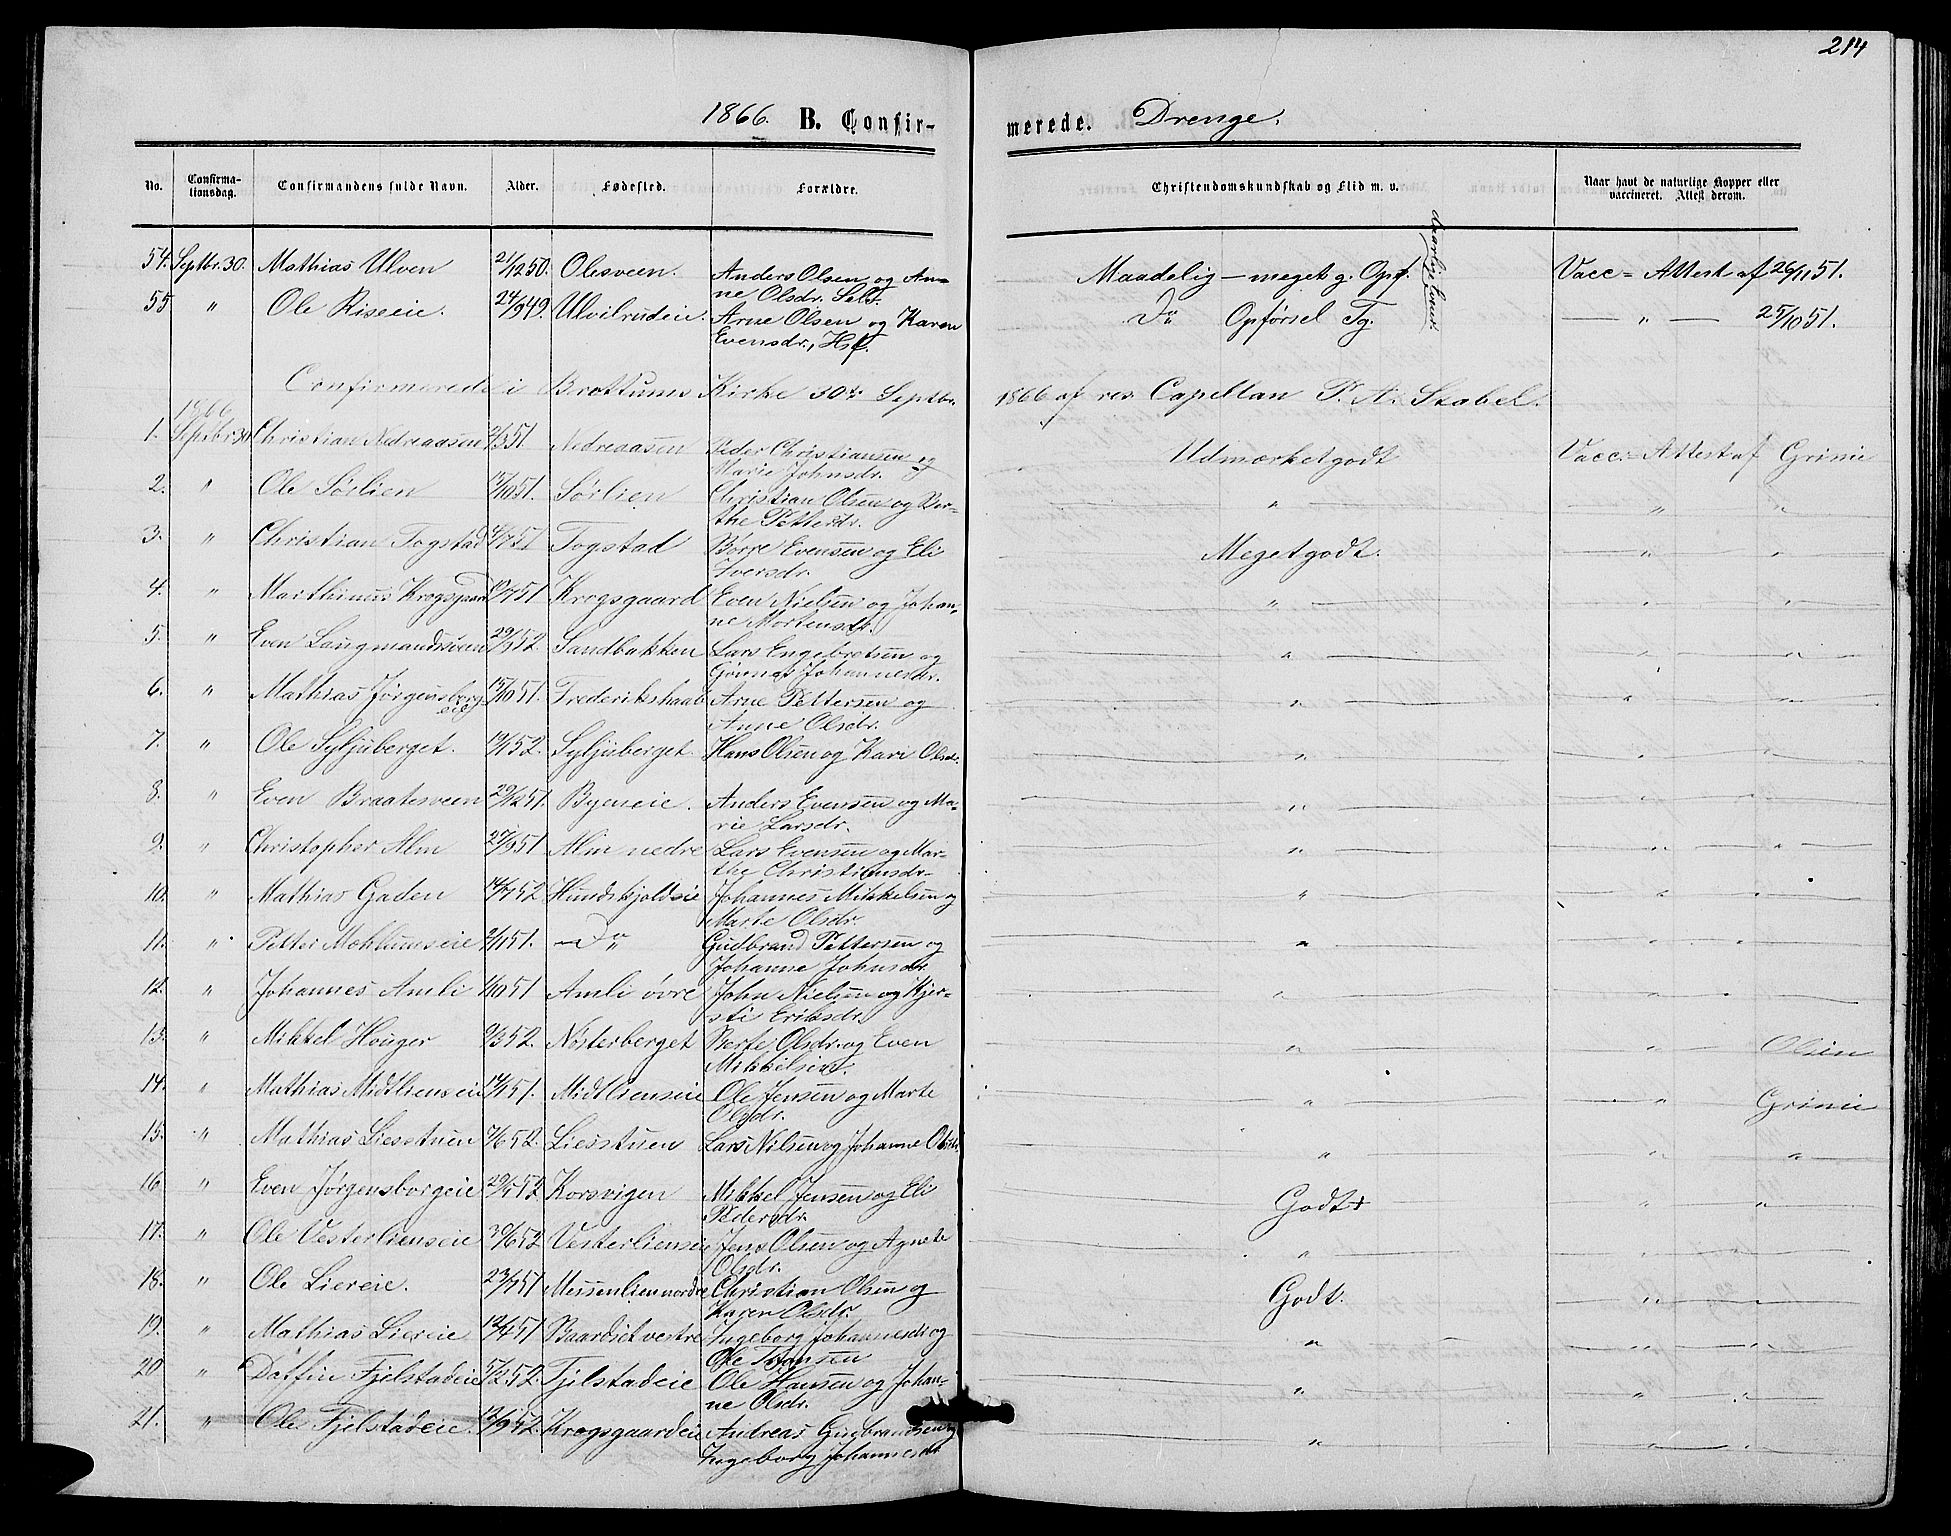 214
1866. B. Confir- merede. Drenge.
No. Confirma-tionsdag. Confirmandens fulde Navn. Alder. Fødested. Forældre. Christendomskundskab og Flid m. v. Naar havt de naturlige Kopper eller vaccineret. Attest derom.
54. Septbr. 30. Mathias Ulven 21/12 50. Olesveen. Anders Olsen og An- Maadelig — meget g. Opf. Vacc = Attest af 26/11 51.
ne Olsdr. Selv.
55 " Ole Riseeie. 24/9 49. Ulvilrudeie. Arne Olsen og Karen Do Opførsel Tg. — " — 25/10 51.
Evensdr., Hf.
Confirmerede i Brøttums Kirke 30te Septbr. 1866 af res. Capellan P. A. Stabel.
1866
1. Septbr 30 Christian Nedreaasen /3 51 Nedreaasen Peder Christiansen og Udmærketgodt Vacc. Attest af Grinie
Marie Johnsdr.
2. " Ole Sørlien /10 51. Sørlien Christian Olsen og Ber- " " "
the Pettersdr.
3. " Christian Togstad /7 51 Togstad Børre Evensen og Eli Megetgodt. " "
Iversdr.
4. " Marthinus Krogsgaard /7 51 Krogsgaard Even Nielsen og Johan- " " "
ne Mortensdr.
5. " Even Langmandsveen 29/ 52. Sandbakken Lars Engebretsen og " " "
Johannesdr.
6. " Mathias Jørgensborg- 15/10 51. Frederikshaab Arne Pettersen og " " "
eie Anne Olsdr.
7. " Ole Syljuberget. 52. Syljuberget Hans Olsen og Kari Olsdr. " " "
8. " Even Braatesveen 29/12 51. Byeneie. Anders Evensen og Ma- " " "
rie Larsdr.
9. " Christopher Alm 27/9 51 Alm nedre Lars Evensen og Mar- " " "
the Christiansdr.
10. " Mathias Gaden 14/ 52 Hundskjoldeie Johannes Mikkelsen og " " "
Marte Olsdr.
11. " Petter Mohlumseie 51. — Do Gudbrand Pettersen og " " "
Johanne Johnsdr
12. " Johannes Amli /10 51 Amli øvre John Nielsen og Kjer- " " "
sti Eriksdr.
13. " Mikkel Houger 9/3 52. Nosterberget Berte Olsdr. og Even " " Olsen
Mikkelsen.
14. " Mathias Midtlienseie 51. Midtlienseie Ole Jensen og Marte " " Grinie
Olsdr.
15. " Mathias Liesstuen 7/6 52. Liesstuen Lars Nilsen og Johanne Olsdr. " " "
16 " Even Jørgensborgeie 29/ 52 Korsvigen Mikkel Jensen og Eli Godt+ " "
Pedersdr.
17. " Ole Vesterlienseie 30/6 52 Vesterlienseie Jens Olsen og Agnete " " "
Olsdr.
18. " Ole Liereie. 23/7 51 Messenlien nordre Christian Olsen og Godt. " "
Karen Olsdr.
19. " Mathias Liereie 12/ 51 Baardset vestre Ingeborg Johannesdr og " " "
Ole Hansen
20 " Daffin Fjelstadeie 5/2 52. Fjelstadeie Ole Hansen og Johan- " " "
ne Olsdr.
21. " Ole Fjelstadeie. 12/9 52. Krogsgaardeie Andreas Gudbrandsen og " " "
Ingeborg Johannesdr